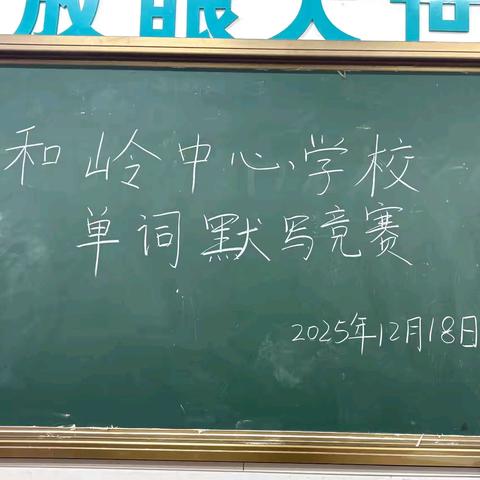 放眼天
和岭中心学校
单词默写竞赛
2025年12月18日